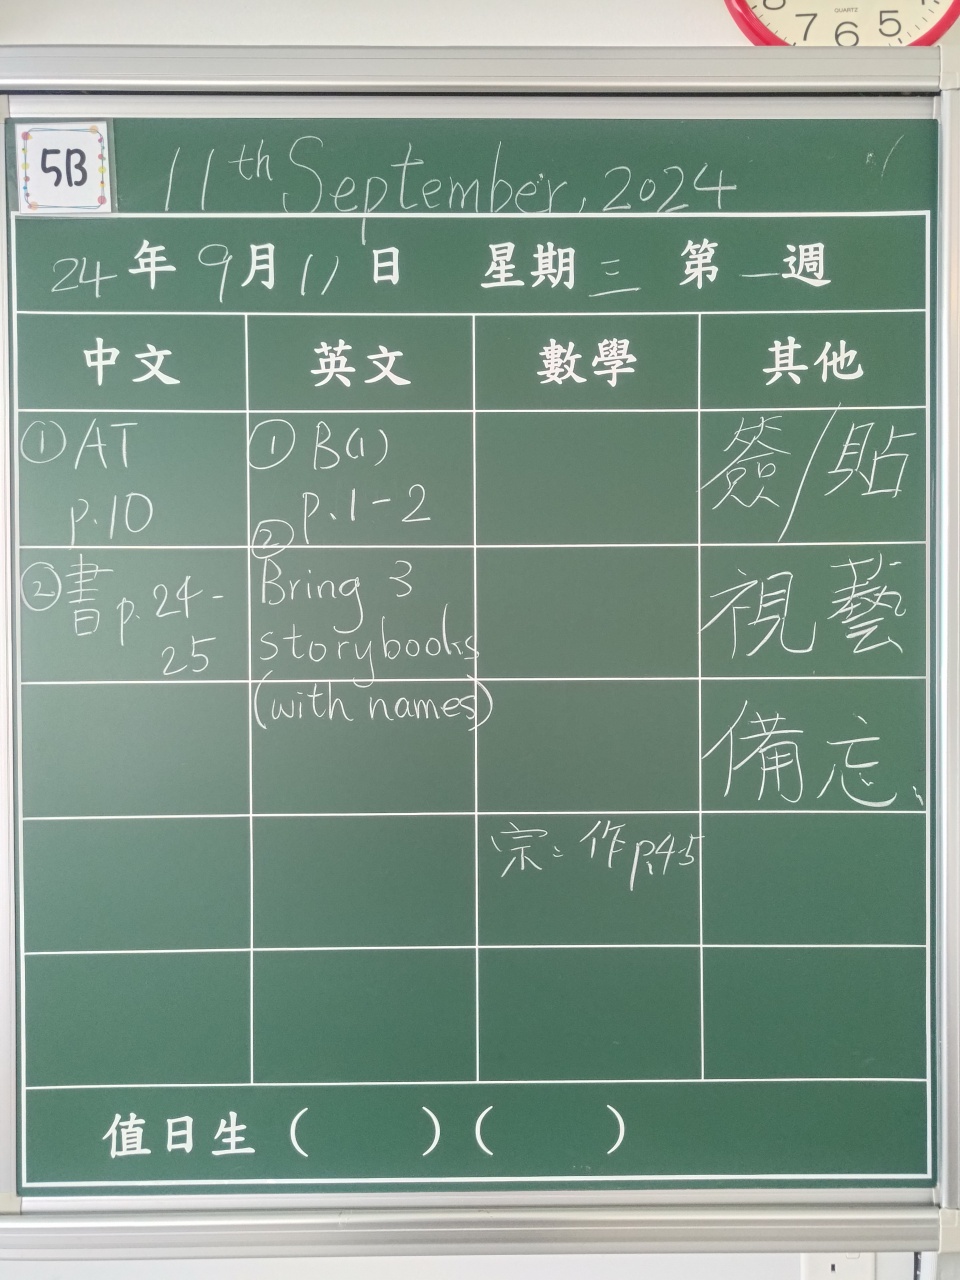 7 6 5
QUARTZ
5B
11th September, 2024
24年9月11日 星期三 第一週
中文 英文 數學 其他
①AT
p.10
②書p.24-
25
①B(1)
p.1-2
②
Bring 3
storybooks
(with names)
宗:作p.45
簽/貼
視藝
備忘
值日生( )( )